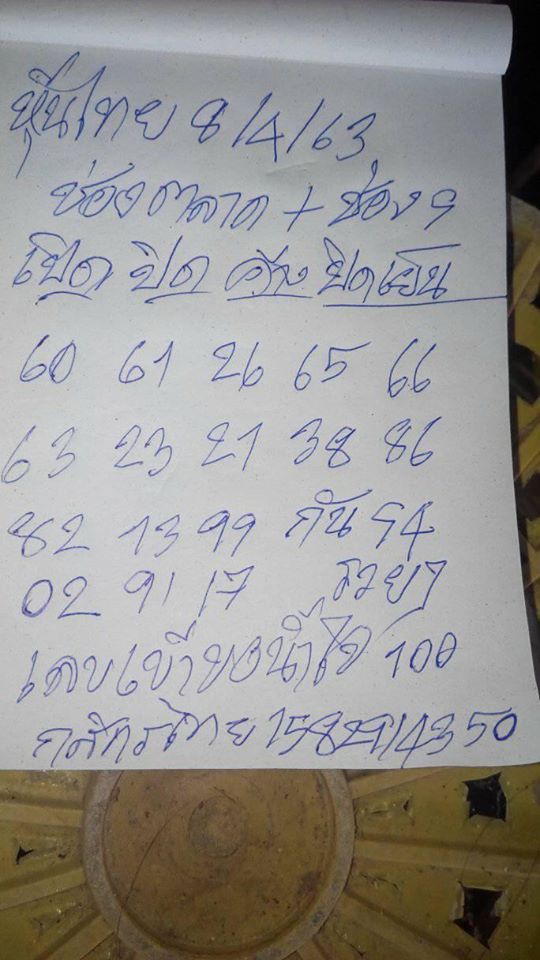 หุ้นไทย 8/4/63
ช่องตลาด + ช่อง 9
เปิด ปิด คัง ปิดเย็น
60 61 26 65 66
63 23 21 38 86
82 13 99 กัน 94
02 91 17 รวยๆ
100
กสิกรไทย